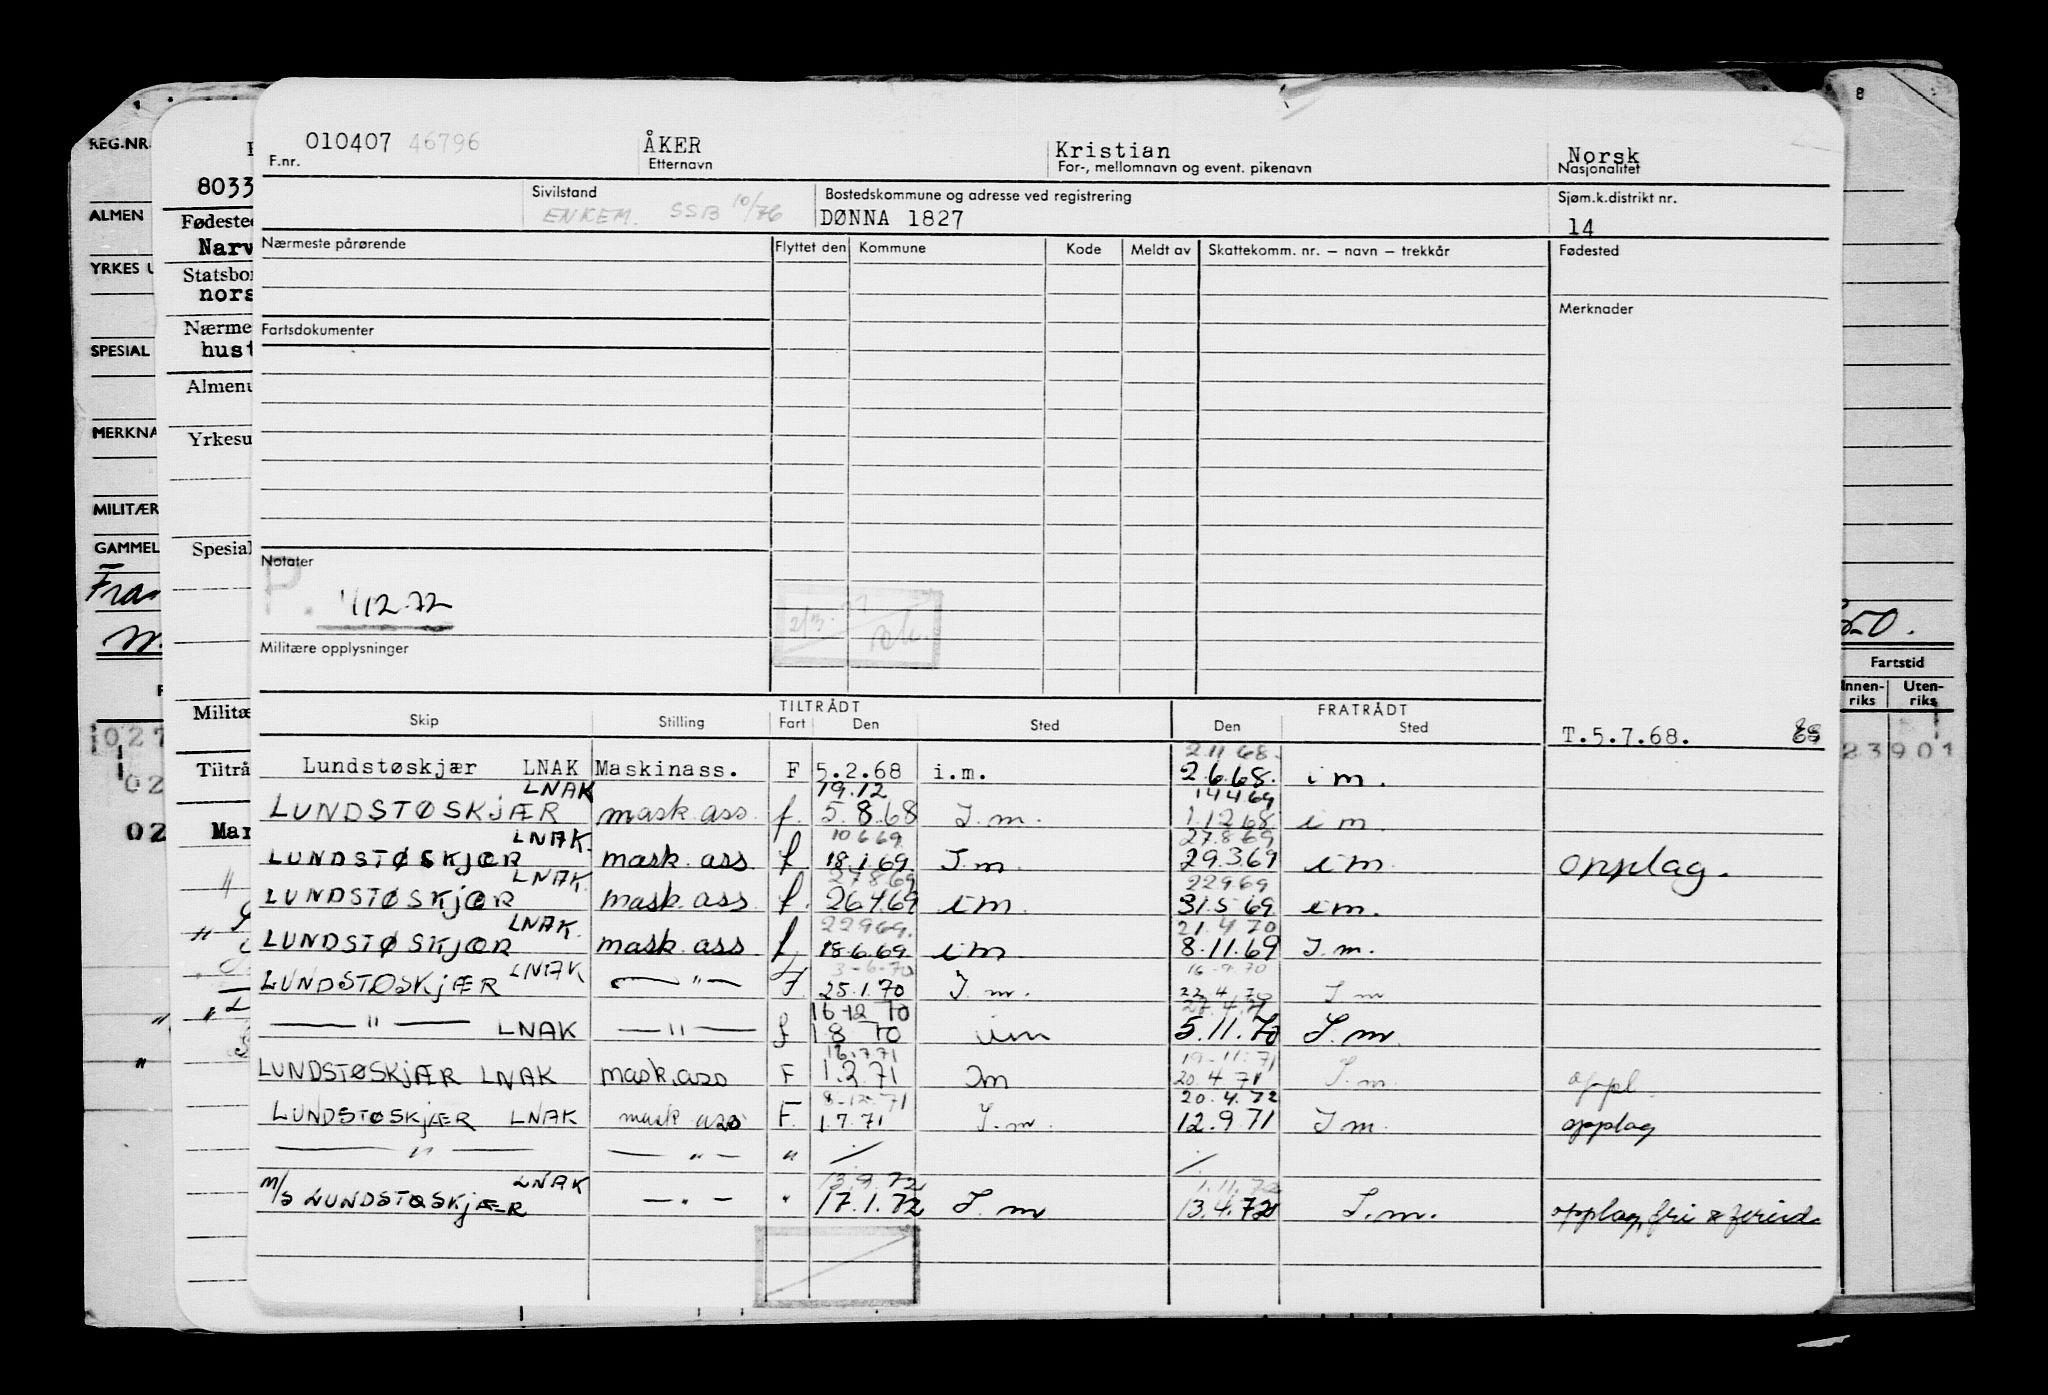 8
REG.NR.
8033
ALMEN
Fødested
Narv
YRKES U
Statsbor
nors
Nærme
hust
SPESIAL
Almenu
MERKNA
Yrkesu
MILITÆR
GAMMEL
Spesial
Fra
m.
50.
Fartstid
Innen-
riks
Uten-
riks
Militæ
027
Tiltrå
02
02
Mar
23901
010407 46796
F.nr.
ÅKER
Etternavn
Kristian
For-, mellomnavn og event. pikenavn
Norsk
Nasjonalitet
Sivilstand
ENKEM. SSB 10/76
Bostedskommune og adresse ved registrering
DØNNA 1827
Sjøm.k.distrikt nr.
14
Nærmeste pårørende
Flyttet den
Kommune
Kode
Meldt av
Skattekomm. nr. – navn – trekkår
Fødested
Merknader
Fartsdokumenter
Notater
P. 1/12.72
Militære opplysninger
TILTRÅDT
FRATRÅDT
Skip
Stilling
Fart
Den
Sted
Den
Sted
T.5.7.68.
2.11.68.
Lundstøskjær LNAK Maskinass. F 5.2.68 i.m. 2.6.68. i m.
LNAK 19.12 14.4.69
LUNDSTØSKJÆR mask.ass. f. 5.8.68 I.m. 1.12.68 i m.
LNAK. 10.6.69 27.8.69
LUNDSTØSKJÆR mask. ass f 18.1.69 I.m 29.3.69 i m. opplag.
LNAK. 27.8.69 22.9.69
LUNDSTØSKJÆR mask. ass f. 26.4.69 i m. 31.5.69 i m.
LNAK. 22.9.69. 21.4.70
LUNDSTØSKJÆR mask. ass f. 18.6.69 i m 8.11.69 I.m.
LNAK 3-6-70 16.9.70
LUNDSTØSKJÆR — " — F. 25.1.70 I.m. 22.4.70 I m
16 12 70
— " — LNAK — " — f 1 8 70 im 5.11.70 I.m
16.7.71 19-11.71
LUNDSTØSKJÆR LNAK mask.ass F 1.2.71 Im 20.4.71 I.m. oppl.
8-12.71 20.4.72
LUNDSTØSKJÆR LNAK mask ass F. 1.7.71 I.m. 12.9.71 I m. opplag
— " — — " — " / /
LNAK 13.9.72 1.11.72
m/s LUNDSTØSKJÆR — " — " 17.1.72 I.m 13.4.72 I.m. opplag, fri &